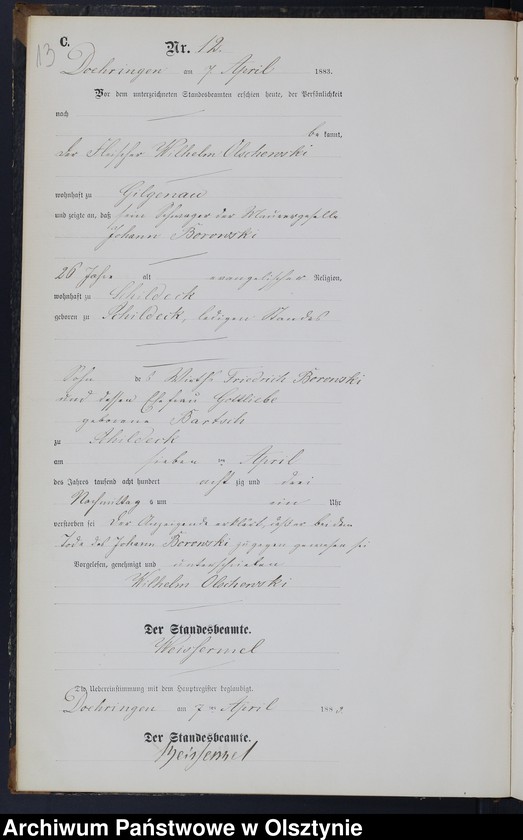 13
C.
Nr. 12.
Doehringen am 7 April 1883.
Vor dem unterzeichneten Standesbeamten erschien heute, der Persönlichkeit
nach
be kannt,
der Fleischer Wilhelm Olschewski
wohnhaft zu Gilgenau
und zeigte an, daß sein Schwager der Maurergeselle
Johann Borowski
26 Jahre alt evangelischer Religion,
wohnhaft zu Schildeck
geboren zu Schildeck, ledigen Standes
Sohn des Wirths Friedrich Borowski
und dessen Ehefrau Gottliebe
geborene Bartsch
zu Schildeck
am sieben ten April
des Jahres tausend acht hundert acht zig und drei
Nachmittag s um ein Uhr
verstorben sei der Anzeigende erklärt, daß er bei dem
Tode des Johann Borowski zugegen gewesen sei
Vorgelesen, genehmigt und unterschrieben
Wilhelm Olschowski
Der Standesbeamte.
Weissermel
Die Uebereinstimmung mit dem Hauptregister beglaubigt.
Doehringen am 7 ten April 1883
Der Standesbeamte.
Weissermel
Archiwum Państwowe w Olsztynie